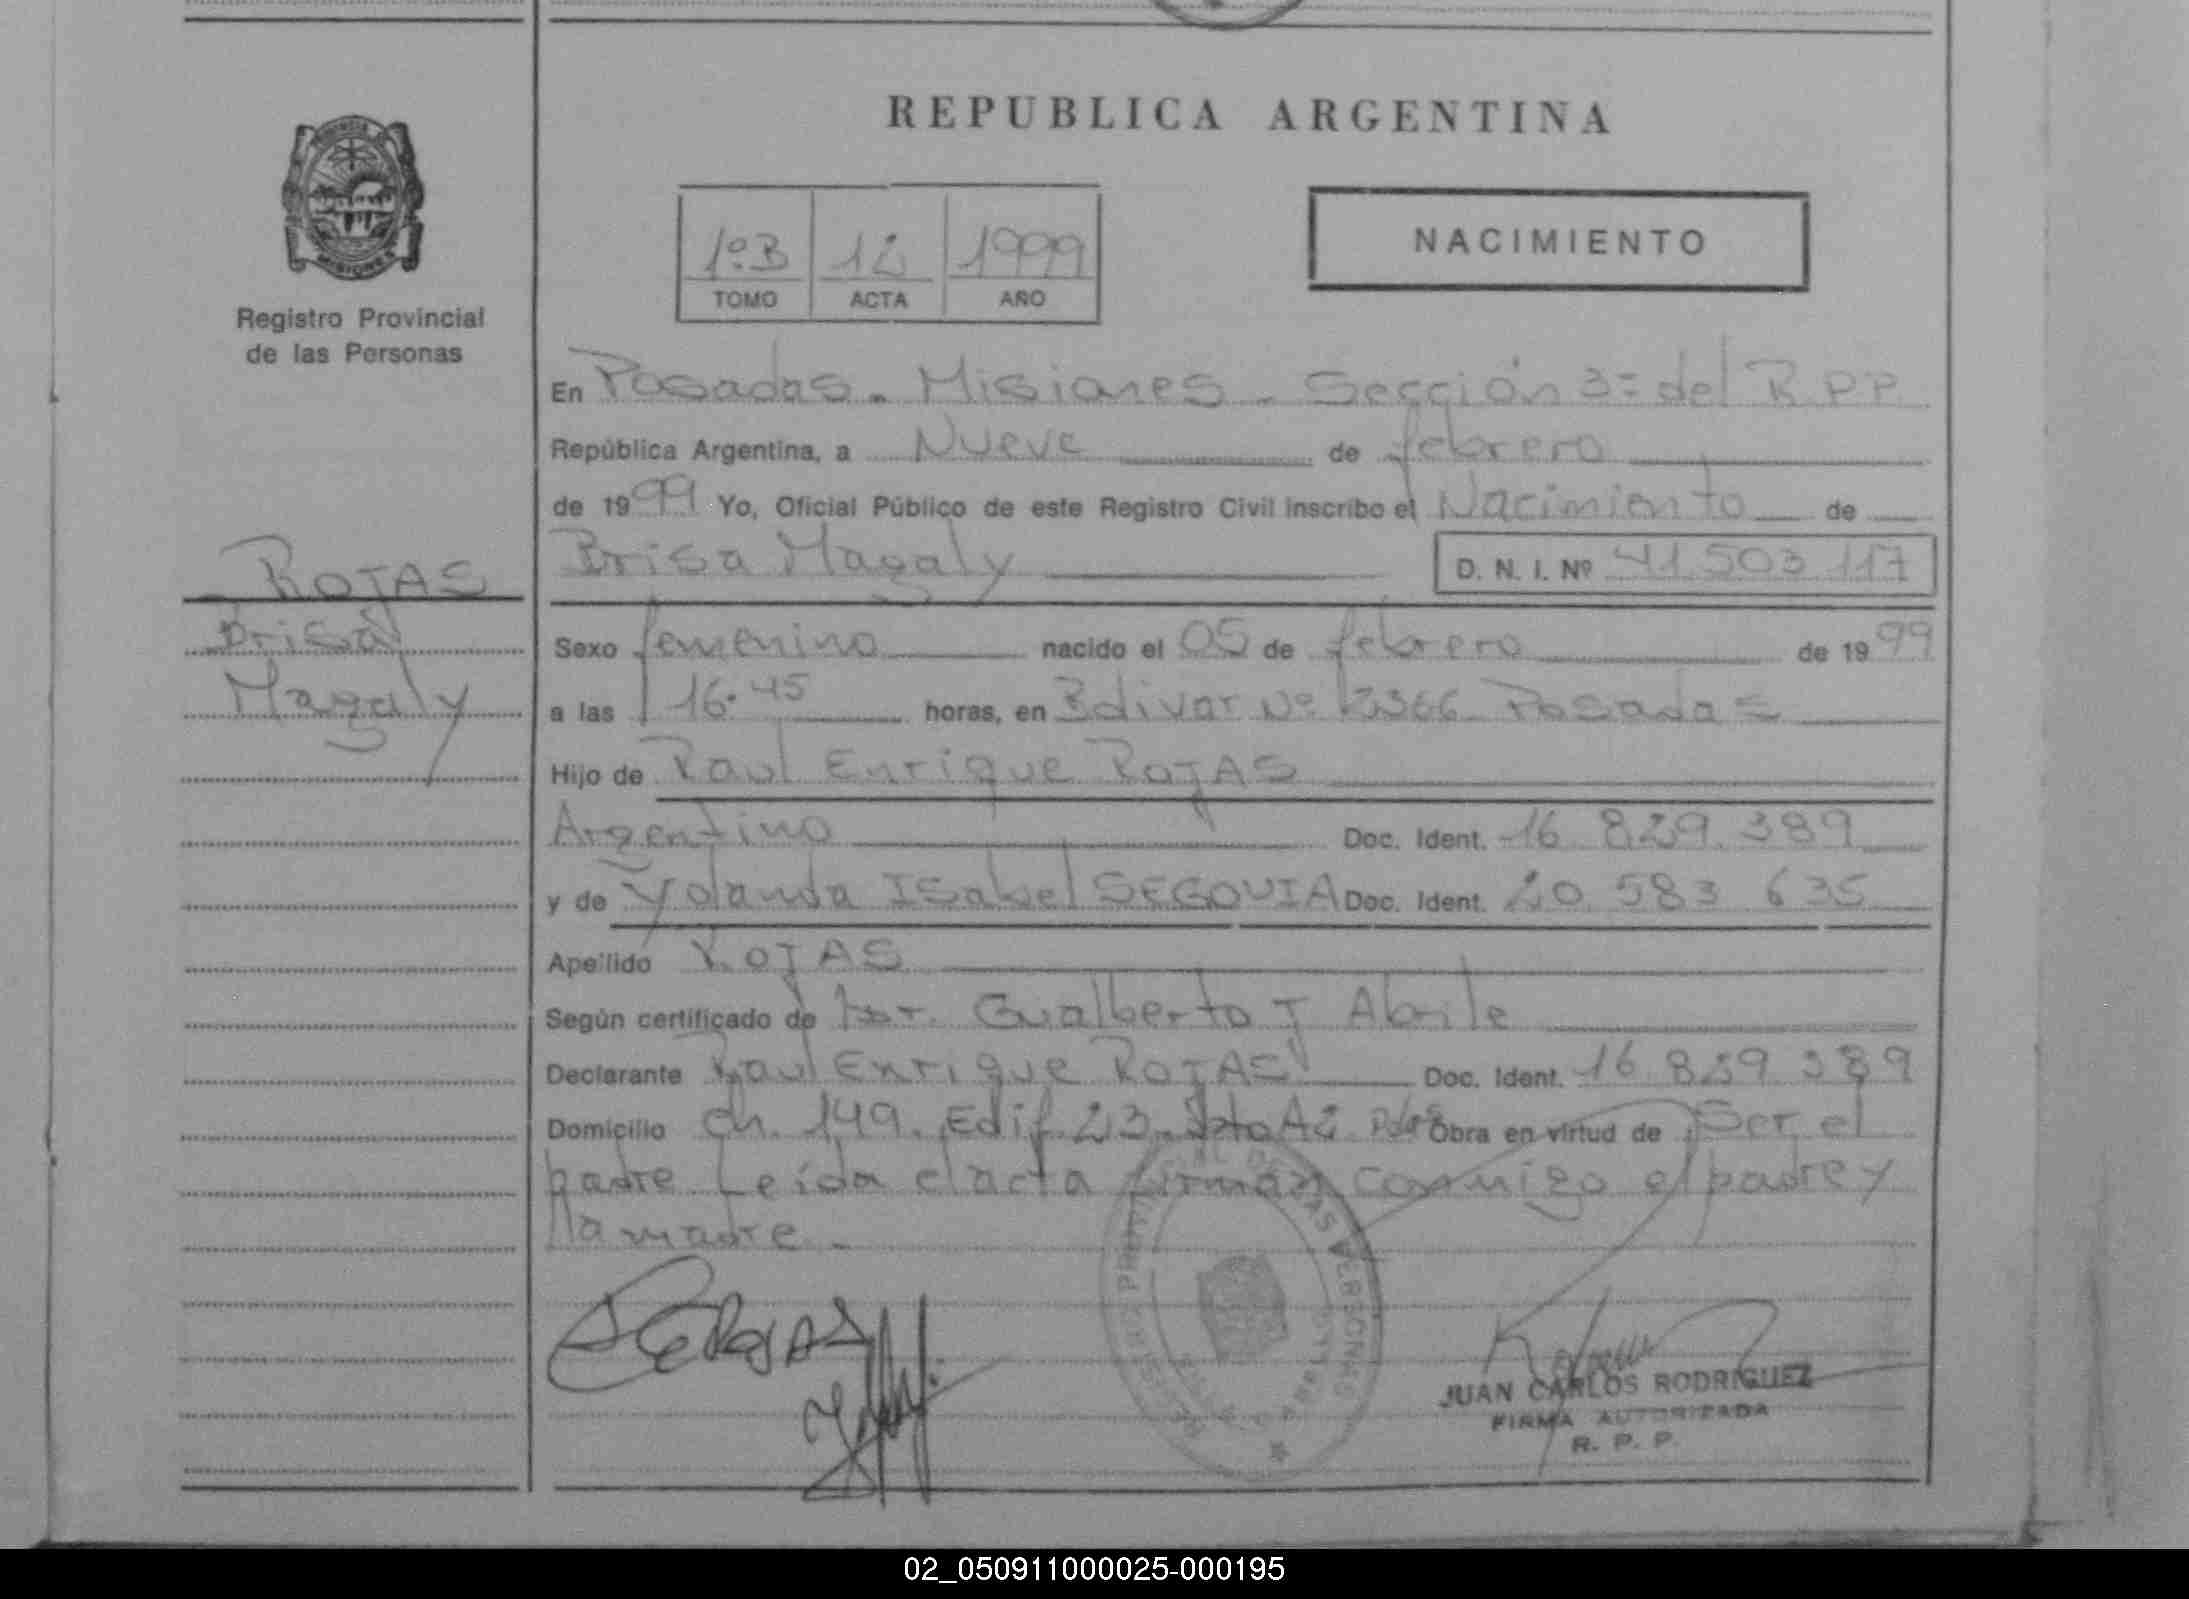 REPUBLICA ARGENTINA
MISIONES
Registro Provincial
de las Personas
1º B 12 1999
TOMO ACTA AÑO
NACIMIENTO
En Posadas. Misiones. Sección 3ª del R.P.P.
República Argentina, a Nueve de febrero
de 1999 Yo, Oficial Público de este Registro Civil inscribo el Nacimiento de
Brisa Magaly D. N. I. Nº 41.503.117
ROJAS
Brisa
Magaly
Sexo femenino nacido el 05 de febrero de 1999
a las 16.45 horas, en Bolivar Nº 2366 Posadas
Hijo de Raul Enrique ROJAS
Argentino Doc. Ident. 16.829.389
y de Yolanda Isabel SEGOVIA Doc. Ident. 20.583.635
Apellido ROJAS
Según certificado de Dr. Gualberto J Abrile
Declarante Raul Enrique ROJAS Doc. Ident. 16.829.389
Domicilio Ch. 149. Edif 23. Dto A2 Pdas Obra en virtud de Ser el
padre Leida el acta firman conmigo el padre y
la madre.
JUAN CARLOS RODRIGUEZ
FIRMA AUTORIZADA
R. P. P.
02_050911000025-000195